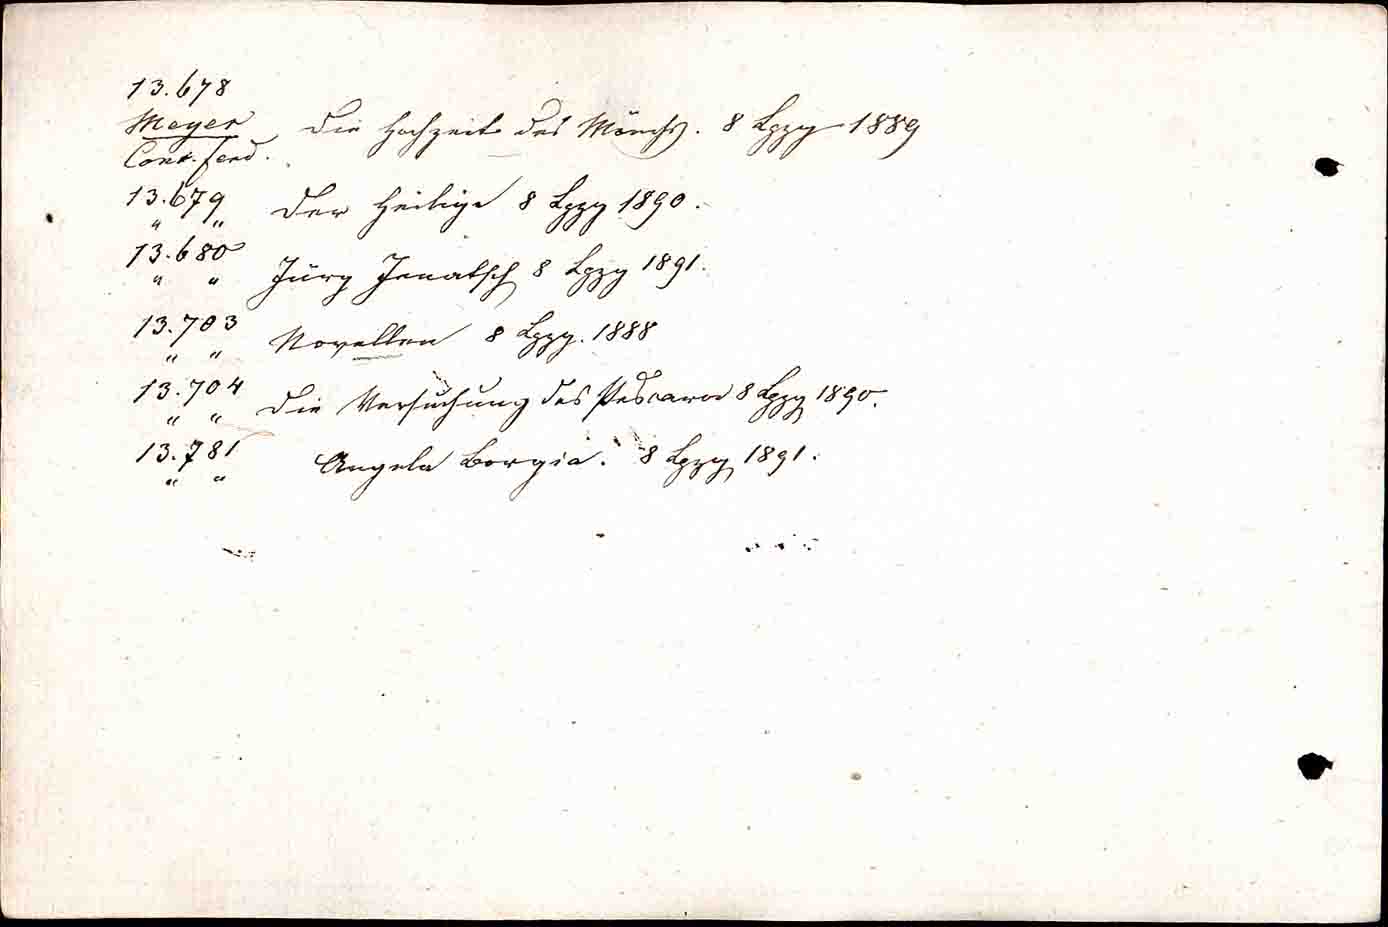 13.678
Meyer Die Hochzeit des Mönchs. 8 Lpzg 1889
Conr. Ferd.
13.679 Der Heilige 8 Lpzg 1890.
" "
13.680 Jürg Jenatsch 8 Lpzg 1891.
" "
13.703 Novellen 8 Lpzg. 1888
" "
13.704 Die Versuchung des Pescara 8 Lpzg 1890.
" "
13.781 Angela Borgia. 8 Lpzg 1891.
" "